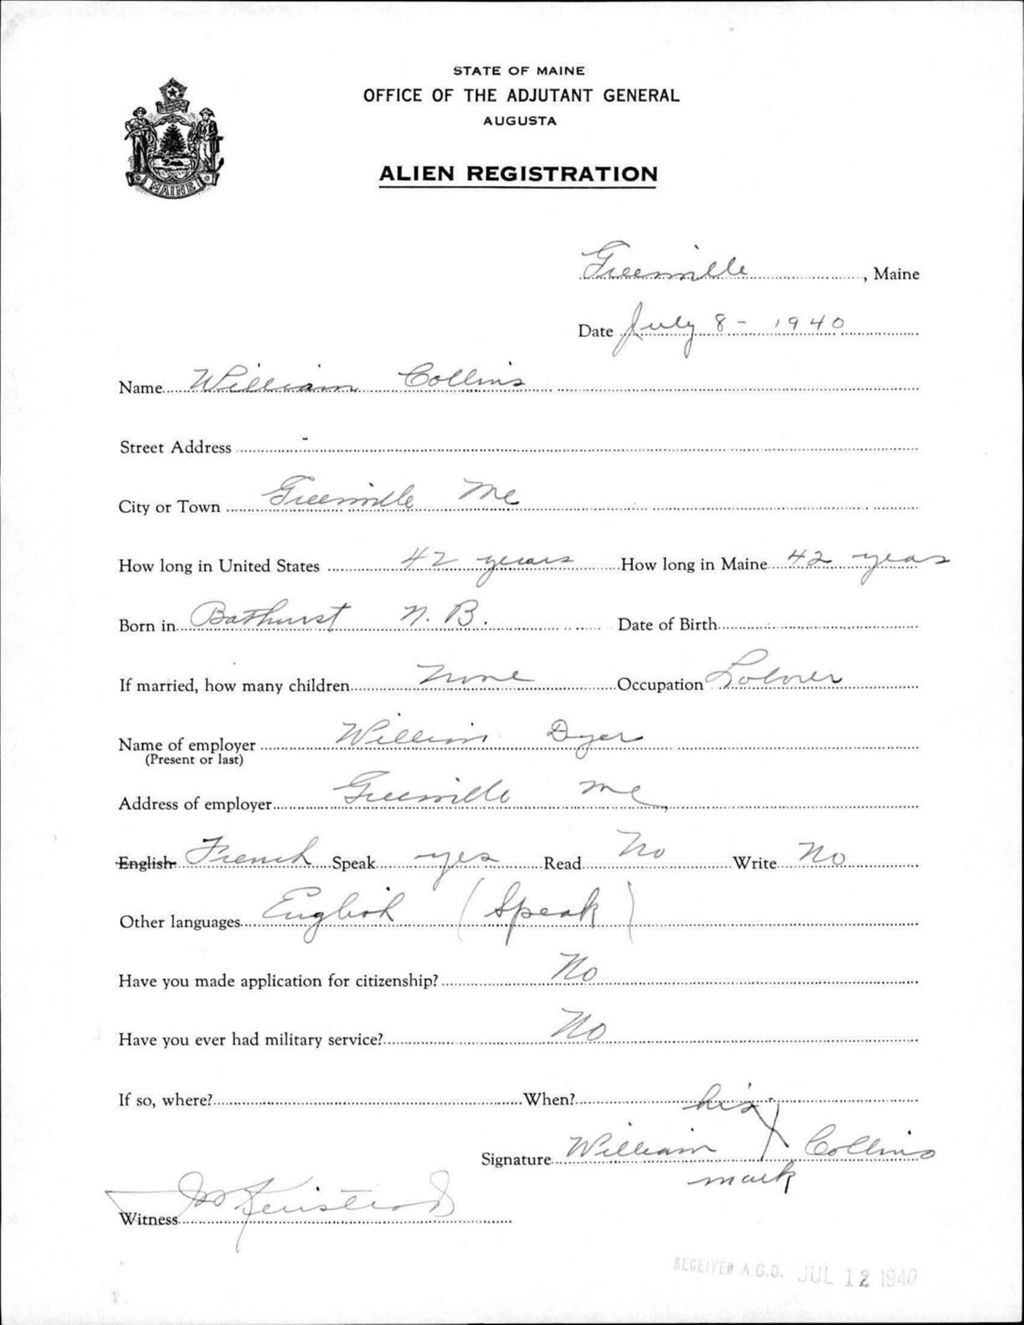 STATE OF MAINE
OFFICE OF THE ADJUTANT GENERAL
AUGUSTA
ALIEN REGISTRATION
MAINE
Greenville, Maine
Date July 8 - 1940
Name William Collins
Street Address -
City or Town Greenville Me
How long in United States 42 years How long in Maine 42 years
Born in Bathurst N. B. Date of Birth
If married, how many children None Occupation Laborer
Name of employer William Dyer
(Present or last)
Address of employer Greenville Me
English French Speak yes Read No Write No
Other languages English (Speak)
Have you made application for citizenship? No
Have you ever had military service? No
If so, where? When?
his
Signature William X Collins
mark
Witness
RECEIVED A.G.O. JUL 12 1940